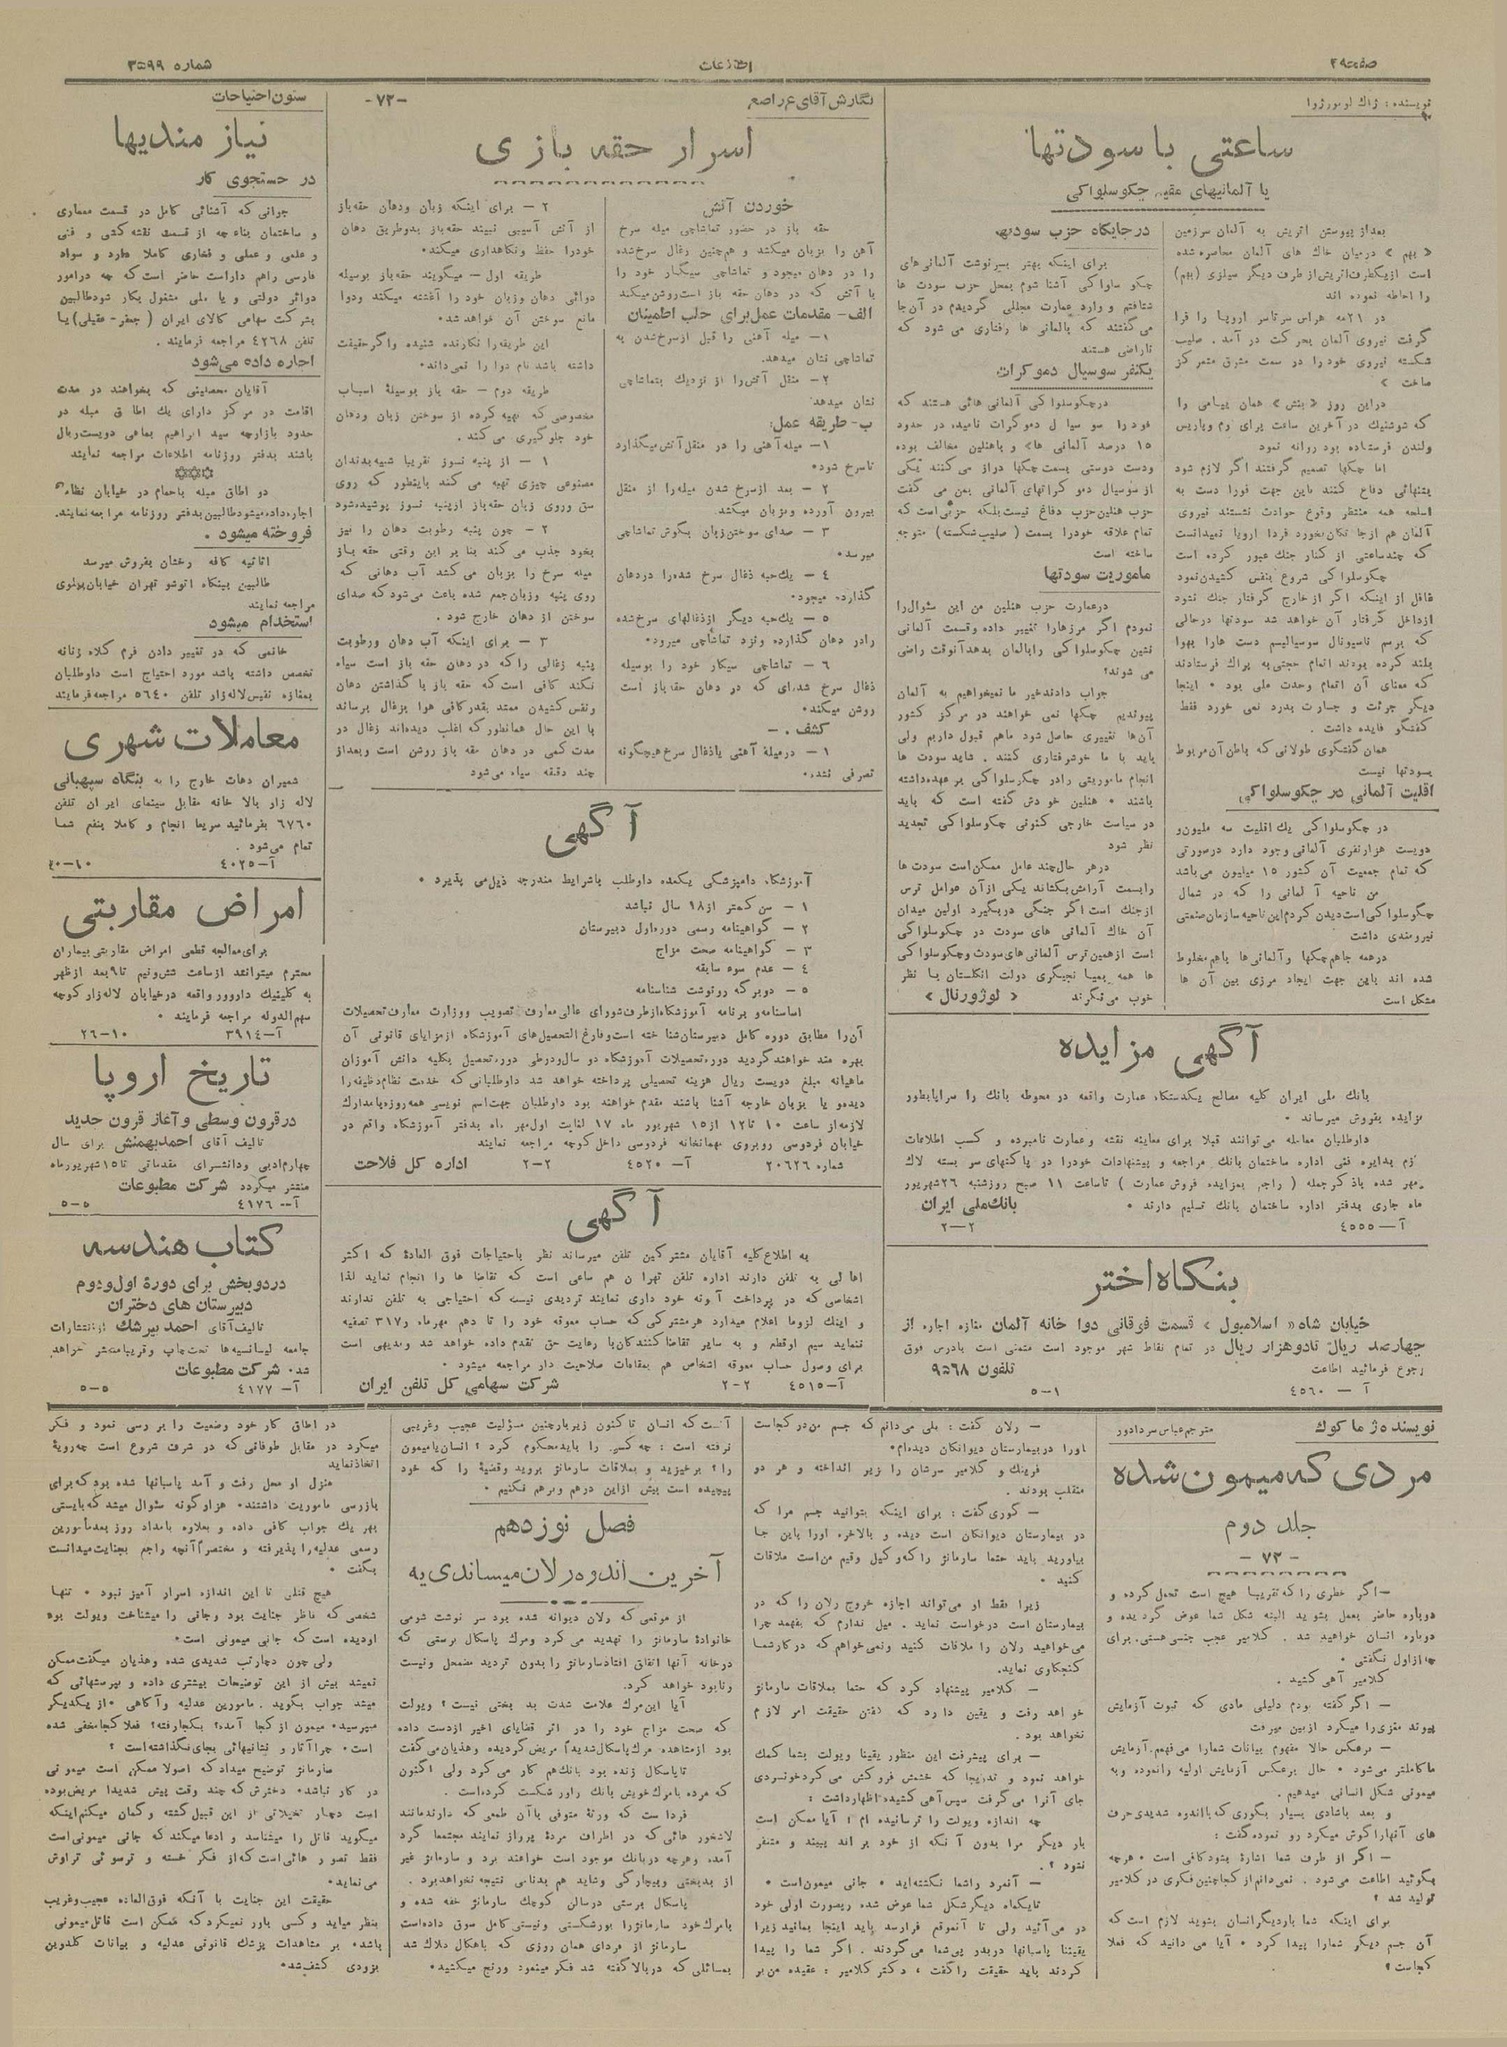 صفحه ۲۹
اطلاعات
شماره ۳۵۹۹
ساعتی با سودتها
یا آلمانیهای مقیم چکوسلواکی
بعد از پیوستن اتریش به آلمان سرزمین
« بهم » درمیان خاک های آلمان محاصره شده
است ازیکطرف اتریش از طرف دیگر سیلزی (بهم)
را احاطه نموده اند
در ۲۱ مه هراس سرتاسر اروپا را فرا
گرفت نیروی آلمان بحرکت در آمد. صلیب
شکسته نیروی خود را در سمت مشرق متمرکز
ساخت »
دراین روز «بنش» همان پیامی را
که شوشنیک در آخرین ساعت برای رم و پاریس
ولندن فرستاده بود روانه نمود
اما چکها تصمیم گرفتند اگر لازم شود
بتنهائی دفاع کنند باین جهت فورا دست به
اسلحه همه منتظر وقوع حوادث نشستند نیروی
آلمان هم از جا تکان نخورد فردا اروپا نمیدانست
که چند ساعتی از کنار جنک عبور کرده است
چکوسلواکی شروع بنفس کشیدن نمود
غافل از اینکه اگر از خارج گرفتار جنک نشود
ازداخل گرفتار آن خواهد شد سودتها درحالی
که برسم ناسیونال سوسیالیسم دست هارا بهوا
بلند کرده بودند اتمام حجتی به پراک فرستادند
که معنای آن اتمام وحدت ملی بود . اینجا
دیگر جرئت و جسارت بدرد نمی خورد فقط
گفتگو فایده داشت .
همان گفتگوی طولانی که پاطن آن مربوط
بسودتها نیست
اقلیت آلمانی در چکوسلواکی
در چکوسلواکی یک اقلیت سه ملیون و
دویست هزار نفری آلمانی وجود دارد درصورتی
که تمام جمعیت آن کشور ۱۵ میلیون می باشد
من ناحیه آلمانی را که در شمال
چکوسلواکی است دیدن کردم این ناحیه سازمان صنعتی
نیرومندی داشت
درهمه جاهم چکها وآلمانی ها باهم مخلوط
شده اند باین جهت ایجاد مرزی بین آن ها
مشکل است
درجایگاه حزب سودتها
برای اینکه بهتر بسرنوشت آلمانی های
چکوسلواکی آشنا شوم بمحل حزب سودت ها
شتافتم و وارد عمارت مجللی گردیدم در آن جا
می گفتند که بآلمانی ها رفتاری می شود که
ناراضی هستند
یکنفر سوسیال دموکرات
درچکوسلواکی آلمانی هائی هستند که
خود را سوسیال دموکرات نامیده، در حدود
۱۵ درصد آلمانی ها» و باهنلین مخالف بوده
ودست دوستی بسمت چکها دراز می کنند یکی
از سوسیال دموکراتهای آلمانی بمن می گفت
حزب هنلین حزب دفاع نیست بلکه حزبی است که
تمام علاقه خود را بسمت (صلیب شکسته) متوجه
ساخته است
ماموریت سودتها
درعمارت حزب هنلین من این سئوال را
نمودم اگر مرزها را تغییر داده وقسمت آلمانی
نشین چکوسلواکی را بآلمان بدهد آنوقت راضی
می شوند؟
جواب دادند خیر ما نمیخواهیم به آلمان
بپیوندیم چکها نمی خواهند در مرکز کشور
آن ها تغییری حاصل شود ماهم قبول داریم ولی
باید با ما خوشرفتاری کنند . شاید سودت ها
انجام ماموریتی را در چکوسلواکی بر عهده داشته
باشند . هنلین خودش گفته است که باید
در سیاست خارجی کنونی چکوسلواکی تجدید
نظر شود
درهر حال چند عامل ممکن است سودت ها
را بسمت آرامش بکشاند یکی از آن عوامل ترس
از جنک است اگر جنگی در بگیرد اولین میدان
آن خاک آلمانی های سودت در چکوسلواکی
است ازهمین ترس آلمانی های سودت وچکوسلواکی
ها همه بمیانجیگری دولت انگلستان با نظر
خوب می نگرند « لوژورنال »
آگهی مزایده
بانک ملی ایران کلیه مصالح یکدستگاه عمارت واقعه در محوطه بانک را سراپا بطور
مزایده بفروش میرساند .
داوطلبان معامله می توانند قبلا برای معاینه نقشه وعمارت نامبرده و کسب اطلاعات
لازم بدایره فنی اداره ساختمان بانک مراجعه و پیشنهادات خود را در پاکتهای سر بسته لاک
ومهر شده باذکر جمله ( راجع بمزایده فروش عمارت ) تاساعت ۱۱ صبح روزشنبه ۲۶ شهریور
ماه جاری بدفتر اداره ساختمان بانک تسلیم دارند . بانک ملی ایران
آ—۴۵۵۵ ۲—۲
بنگاه اختر
خیابان شاه « اسلامبول » قسمت فوقانی دوا خانه آلمان مغازه اجاره از
چهارصد ریال تا دو هزار ریال در تمام نقاط شهر موجود است متمنی است بآدرس فوق
رجوع فرمائید اطاعت تلفون ۹۵۶۸
آ — ۴۵۶۰ ۱-۵
نگارش آقای ع راصع
-۷۳-
اسرار حقه بازی
خوردن آتش
حقه باز در حضور تماشاچی میله سرخ
آهن را بزبان میکشد و همچنین زغال سرخ شده
را در دهان میجود و تماشاچی سیگار خود را
با آتش که در دهان حقه باز است روشن میکند
الف- مقدمات عمل برای جلب اطمینان
۱- میله آهنی را قبل از سرخ شدن به
تماشاچی نشان میدهد.
۲- منقل آتش را از نزدیک بتماشاچی
نشان میدهد
ب- طریقه عمل:
۱- میله آهنی را در منقل آتش میگذارد
تا سرخ شود.
۲ - بعد از سرخ شدن میله را از منقل
بیرون آورده و بزبان میکشد.
۳ - صدای سوختن زبان بگوش تماشاچی
میرسد.
۴ - یک حبه ذغال سرخ شده را دردهان
گذارده میجود.
۵ - یک حبه دیگر از ذغالهای سرخ شده
را در دهان گذارده ونزد تماشاچی میرود.
۶ - تماشاچی سیگار خود را بوسیله
ذغال سرخ شده ای که در دهان حقه باز است
روشن میکند.
کشف . -
۱ - درمیله آهنی یا ذغال سرخ هیچگونه
تصرفی نشده.
۲ - برای اینکه زبان ودهان حقه باز
از آتش آسیبی نبیند حقه باز بدو طریق دهان
خود را حفظ ونگاهداری میکند.
طریقه اول - میگویند حقه باز بوسیله
دوائی دهان وزبان خود را آغشته میکند ودوا
مانع سوختن آن خواهد شد.
این طریقه را نگارنده شنیده واگر حقیقت
داشته باشد نام دوا را نمی داند.
طریقه دوم - حقه باز بوسیله اسباب
مخصوصی که تهیه کرده از سوختن زبان ودهان
خود جلوگیری می کند .
۱ - از پنبه نسوز تقریبا شبیه بدندان
مصنوعی چیزی تهیه می کند بایطور که روی
سق وروی زبان حقه باز از پنبه نسوز پوشیده شود
۲ - چون پنبه رطوبت دهان را نیز
بخود جذب می کند بنا بر این وقتی حقه باز
میله سرخ را بزبان می کشد آب دهانی که
روی پنبه وزبان جمع شده باعث می شود که صدای
سوختن از دهان خارج شود .
۳ - برای اینکه آب دهان ورطوبت
پنبه زغالی را که در دهان حقه باز است سیاه
نکند کافی است که حقه باز با گذاشتن دهان
ونفس کشیدن ممتد بقدر کافی هوا بزغال برساند
با این حال همانطور که اغلب دیده اند زغال در
مدت کمی در دهان حقه باز روشن است وبعد از
چند دقیقه سیاه می شود
آگهی
آموزشگاه دامپزشکی یکعده داوطلب باشرایط مندرجه ذیل می پذیرد .
۱ - سن کمتر از ۱۸ سال نباشد
۲ - گواهینامه رسمی دوره اول دبیرستان
۳ - گواهینامه صحت مزاج
۴ - عدم سوء سابقه
۵ - دو برگه رونوشت شناسنامه
اساسنامه و برنامه آموزشگاه از طرف شورای عالی معارف تصویب ووزارت معارف تحصیلات
آن را مطابق دوره کامل دبیرستان شناخته است وفارغ التحصیل های آموزشگاه از مزایای قانونی آن
بهره مند خواهند گردید دوره تحصیلات آموزشگاه دو سال ودرطی دوره تحصیل بکلیه دانش آموزان
ماهیانه مبلغ دویست ریال هزینه تحصیلی پرداخته خواهد شد داوطلبانی که خدمت نظام وظیفه را
دیده و یا بزبان خارجه آشنا باشند مقدم خواهند بود داوطلبان جهت اسم نویسی همه روزه بامدارک
لازمه از ساعت ۱۰ تا ۱۲ از ۱۵ شهریور ماه ۱۷ لغایت اول مهر ماه بدفتر آموزشگاه واقع در
خیابان فردوسی روبروی مهمانخانه فردوسی داخل کوچه مراجعه نمایند
شماره ۲۰۶۲۶ آ- ۴۵۲۰ ۲-۲ اداره کل فلاحت
آگهی
به اطلاع کلیه آقایان مشترکین تلفن میرساند نظر باحتیاجات فوق العادۀ که اکثر
اهالی به تلفن دارند اداره تلفن تهران هم ساعی است که تقاضا ها را انجام نماید لذا
اشخاصی که در پرداخت آبونه خود داری نمایند تردیدی نیست که احتیاجی به تلفن ندارند
و اینک لزوما اعلام میدارد هر مشترکی که حساب معوقه خود را تا دهم مهرماه ۳۱۷ تصفیه
ننماید سیم او قطع و به سایر تقاضا کنندگان با رعایت حق تقدم داده خواهد شد وبدیهی است
برای وصول حساب معوقه اشخاص هم بمقامات صلاحیت دار مراجعه میشود .
آ-۴۵۱۵ ۲-۲ شرکت سهامی کل تلفن ایران
ستون احتیاجات
نیاز مندیها
در جستجوی کار
جوانی که آشنائی کامل در قسمت معماری
و ساختمان بناء چه از قسمت نقشه کشی و فنی
و علمی و عملی و فخاری کاملا دارد و سواد
فارسی راهم داراست حاضر است که چه درامور
دوائر دولتی و یا ملی مشغول بکار شود طالبین
بشرکت سهامی کالای ایران ( جعفر-عقیلی) یا
تلفن ۴۲۶۸ مراجعه فرمایند .
اجاره داده می شود
آقایان محصلینی که بخواهند در مدت
اقامت در مرکز دارای یک اطاق مبله در
حدود بازارچه سید ابراهیم بماهی دویست ریال
باشند بدفتر روزنامه اطلاعات مراجعه نمایند
دو اطاق مبله باحمام در خیابان نظامی
اجاره داده میشود طالبین بدفتر روزنامه مراجعه نمایند.
فروخته میشود .
اثاثیه کافه رخشان بفروش میرسد
طالبین ببنگاه اتوشو تهران خیابان پهلوی
مراجعه نمایند
استخدام میشود
خانمی که در تغییر دادن فرم کلاه زنانه
تخصص داشته باشد مورد احتیاج است داوطلبان
بمغازه نفیس لاله زار تلفن ۵۶۴۰ مراجعه فرمایند
معاملات شهری
شمیران دهات خارج را به بنگاه سپهبانی
لاله زار بالا خانه مقابل سینمای ایران تلفن
۶۷۶۰ بفرمائید سریعا انجام و کاملا بنفع شما
تمام می شود .
آ-۴۰۲۵ ۱۰-۲۰
امراض مقاربتی
برای معالجه قطعی امراض مقاربتی بیماران
محترم میتوانند از ساعت شش ونیم تا ۹ بعد از ظهر
به کلینیک داوور واقعه درخیابان لاله زار کوچه
سهم الدوله مراجعه فرمایند .
آ-۳۹۱۴ ۱۰-۲۶
تاریخ اروپا
در قرون وسطی و آغاز قرون جدید
تالیف آقای احمد بهمنش برای سال
چهارم ادبی ودانشسرای مقدماتی تا ۱۵ شهریور ماه
منتشر میگردد شرکت مطبوعات
آ-۴۱۷۶ ۵-۵
کتاب هندسه
در دوبخش برای دورۀ اول ودوم
دبیرستان های دختران
تالیف آقای احمد بیرشک از انتشارات
جامعه لیسانسیه ها تحت چاپ و قریبا منتشر خواهد
شد. شرکت مطبوعات
آ- ۴۱۷۷ ۵-۵
نویسنده ژ ماکوک
مترجم عباس سردادور
مردی که میمون شده
جلد دوم
- ۷۳ -
—اگر خطری را که تقریبا هیچ است تحمل کرده و
دوباره حاضر بعمل بشوید البته شکل شما عوض گردیده و
دوباره انسان خواهید شد . کلامیر عجب جنسی هستی. برای
چه از اول نگفتی .
کلامیر آهی کشید .
— اگر گفته بودم دلیلی مادی که ثبوت آزمایش
پیوند مغزی را میکرد از بین میرفت
— برعکس حالا مفهوم بیانات شما را می فهمم. آزمایش
ما کاملتر می شود . حال برعکس آزمایش اولیه را نموده و به
میمونی شکل انسانی میدهیم .
و بعد باشادی بسیار بگوری که با اندوه شدیدی حرف
های آنها را گوش میکرد رو نموده گفت :
— اگر از طرف شما اشارۀ بشود کافی است . هر چه
بگوئید اطاعت می شود . نمی دانم از کجا چنین فکری در کلامیر
تولید شد ؟
برای اینکه شما بار دیگر انسان بشوید لازم است که
آن جسم دیگر شما را پیدا کرد . آیا می دانید که فعلا
کجاست ؟
— رلان گفت : بلی می دانم که جسم من در کجاست
اورا در بیمارستان دیوانگان دیده ام.
فرینک و کلامیر سرشان را زیر انداخته و هر دو
منقلب بودند .
— گوری گفت : برای اینکه بتوانید جسم مرا که
در بیمارستان دیوانگان است دیده و بالاخره اورا باین جا
بیاورید باید حتما سارمانژ را که وکیل وقیم من است ملاقات
کنید .
زیرا فقط او می تواند اجازه خروج رلان را که در
بیمارستان است درخواست نماید . میل ندارم که بفهمد چرا
می خواهید رلان را ملاقات کنید ونمی خواهم که در کار شما
کنجکاوی نماید.
— کلامیر پیشنهاد کرد که حتما بملاقات سارمانژ
خواهد رفت و یقین دارد که گفتن حقیقت امر لازم
نخواهد بود .
— برای پیشرفت این منظور یقینا ویولت بشما کمک
خواهد نمود و تدریجا که خشمش فروکش می کرد خونسردی
جای آنرا می گرفت سپس آهی کشیده اظهار داشت :
چه اندازه ویولت را ترسانیده ام ! آیا ممکن است
بار دیگر مرا بدون آنکه از خود براند ببیند و متنفر
نشود ؟ .
— آنمرد را شما نکشته اید . جانی میمون است .
تا یکماه دیگر شکل شما عوض شده ریصورت اولی خود
در می آئید ولی تا آنموقع فرا رسد باید اینجا بمانید زیرا
یقیننا پاسبانها در بدر پی شما می گردند . اگر شما را پیدا
کردند باید حقیقت را گفت ، دکتر کلامیر : عقیده من بر
آنست که انسان تا کنون زیربار چنین مسؤلیت عجیب وغریبی
نرفته است : چه کسی را باید محکوم کرد ؟ انسان یا میمون
را ؟ برخیزید و بملاقات سارمانژ بروید و قضیۀ را که خود
پیچیده است بیش از این درهم و برهم نکنیم .
فصل نوزدهم
آخرین اندوه رلان میساندی یه
از موقعی که رلان دیوانه شده بود سر نوشت شومی
خانوادۀ سارمانژ را تهدید می کرد ومرک پاسکال برستی که
در خانه آنها اتفاق افتاد سارمانژ را بدون تردید مضمحل ونیست
ونابود خواهد کرد.
آیا این مرک علامت شدت بد بختی نیست ؟ ویولت
که صحت مزاج خود را در اثر قضایای اخیر از دست داده
بود از مشاهده مرک پاسکال شدیداً مریض گردیده وهذیان می گفت
تا پاسکال زنده بود بانک هم کار می کرد ولی اکنون
که مرده بامرک خویش بانک را ورشکست کرده است .
فردا است که ورثۀ متوفی باآن طمعی که دارند مانند
لاشخور هائی که در اطراف مردۀ پرواز نمایند مجتمعا گرد
آمده وهرچه در بانک موجود است خواهند برد و سارمانژ غیر
از بدبختی وبیچارگی وشاید هم بدنامی نتیجه نخواهد برد .
پاسکال برستی درسالن کوچک سارمانژ خفه شده و
بامرک خود سارمانژ را بورشکستی ونیستی کامل سوق داده است
سارمانژ از فردای همان روزی که پاسکال هلاک شد
بمسائلی که دربالا گفته شد فکر مینمود ورنج میکشید.
در اطاق کار خود وضعیت را بررسی نمود و فکر
میکرد در مقابل طوفانی که در شرف شروع است چه رویۀ
اتخاذ نماید
منزل او محل رفت و آمد پاسبانها شده بود که برای
بازرسی ماموریت داشتند. هزار گونه سئوال میشد که بایستی
بهر یک جواب کافی داده و بعلاوه بامداد روز بعد مأمورین
رسمی عدلیه را پذیرفته و مختصراً آنچه راجع بجنایت میدانست
بگفت .
هیچ قتلی تا این اندازه اسرار آمیز نبود . تنها
شخصی که ناظر جنایت بود وجانی را میشناخت ویولت بود
او دیده است که جانی میمونی است.
ولی چون دچار تب شدیدی شده وهذیان میگفت ممکن
نمیشد بیش از این توضیحات بیشتری داده و بپرسشهائی که
میشد جواب بگوید . مامورین عدلیه و آگاهی .از یکدیگر
میپرسید. میمون از کجا آمده؟ بکجا رفته؟ فعلا کجا مخفی شده
است . چرا آثار و نشانیهائی بجای نگذاشته است ؟
سارمانژ توضیح میداد که اصولا ممکن است میمونی
در کار نباشد . دخترش که چند وقت پیش شدیدا مریض بوده
است دچار تخیلاتی از این قبیل گشته و گمان میکنم اینکه
میگوید قاتل را میشناسد و ادعا میکند که جانی میمونی است
فقط تصور هائی است که از فکر خسته و ترسوئی تراوش
می نماید.
حقیقت این جنایت با آنکه فوق العاده عجیب وغریب
بنظر میاید و کسی باور نمیکرد که ممکن است قاتل میمونی
باشد. بر مشاهدات پزشک قانونی عدلیه و بیانات کلدوین
بزودی کشف شد.